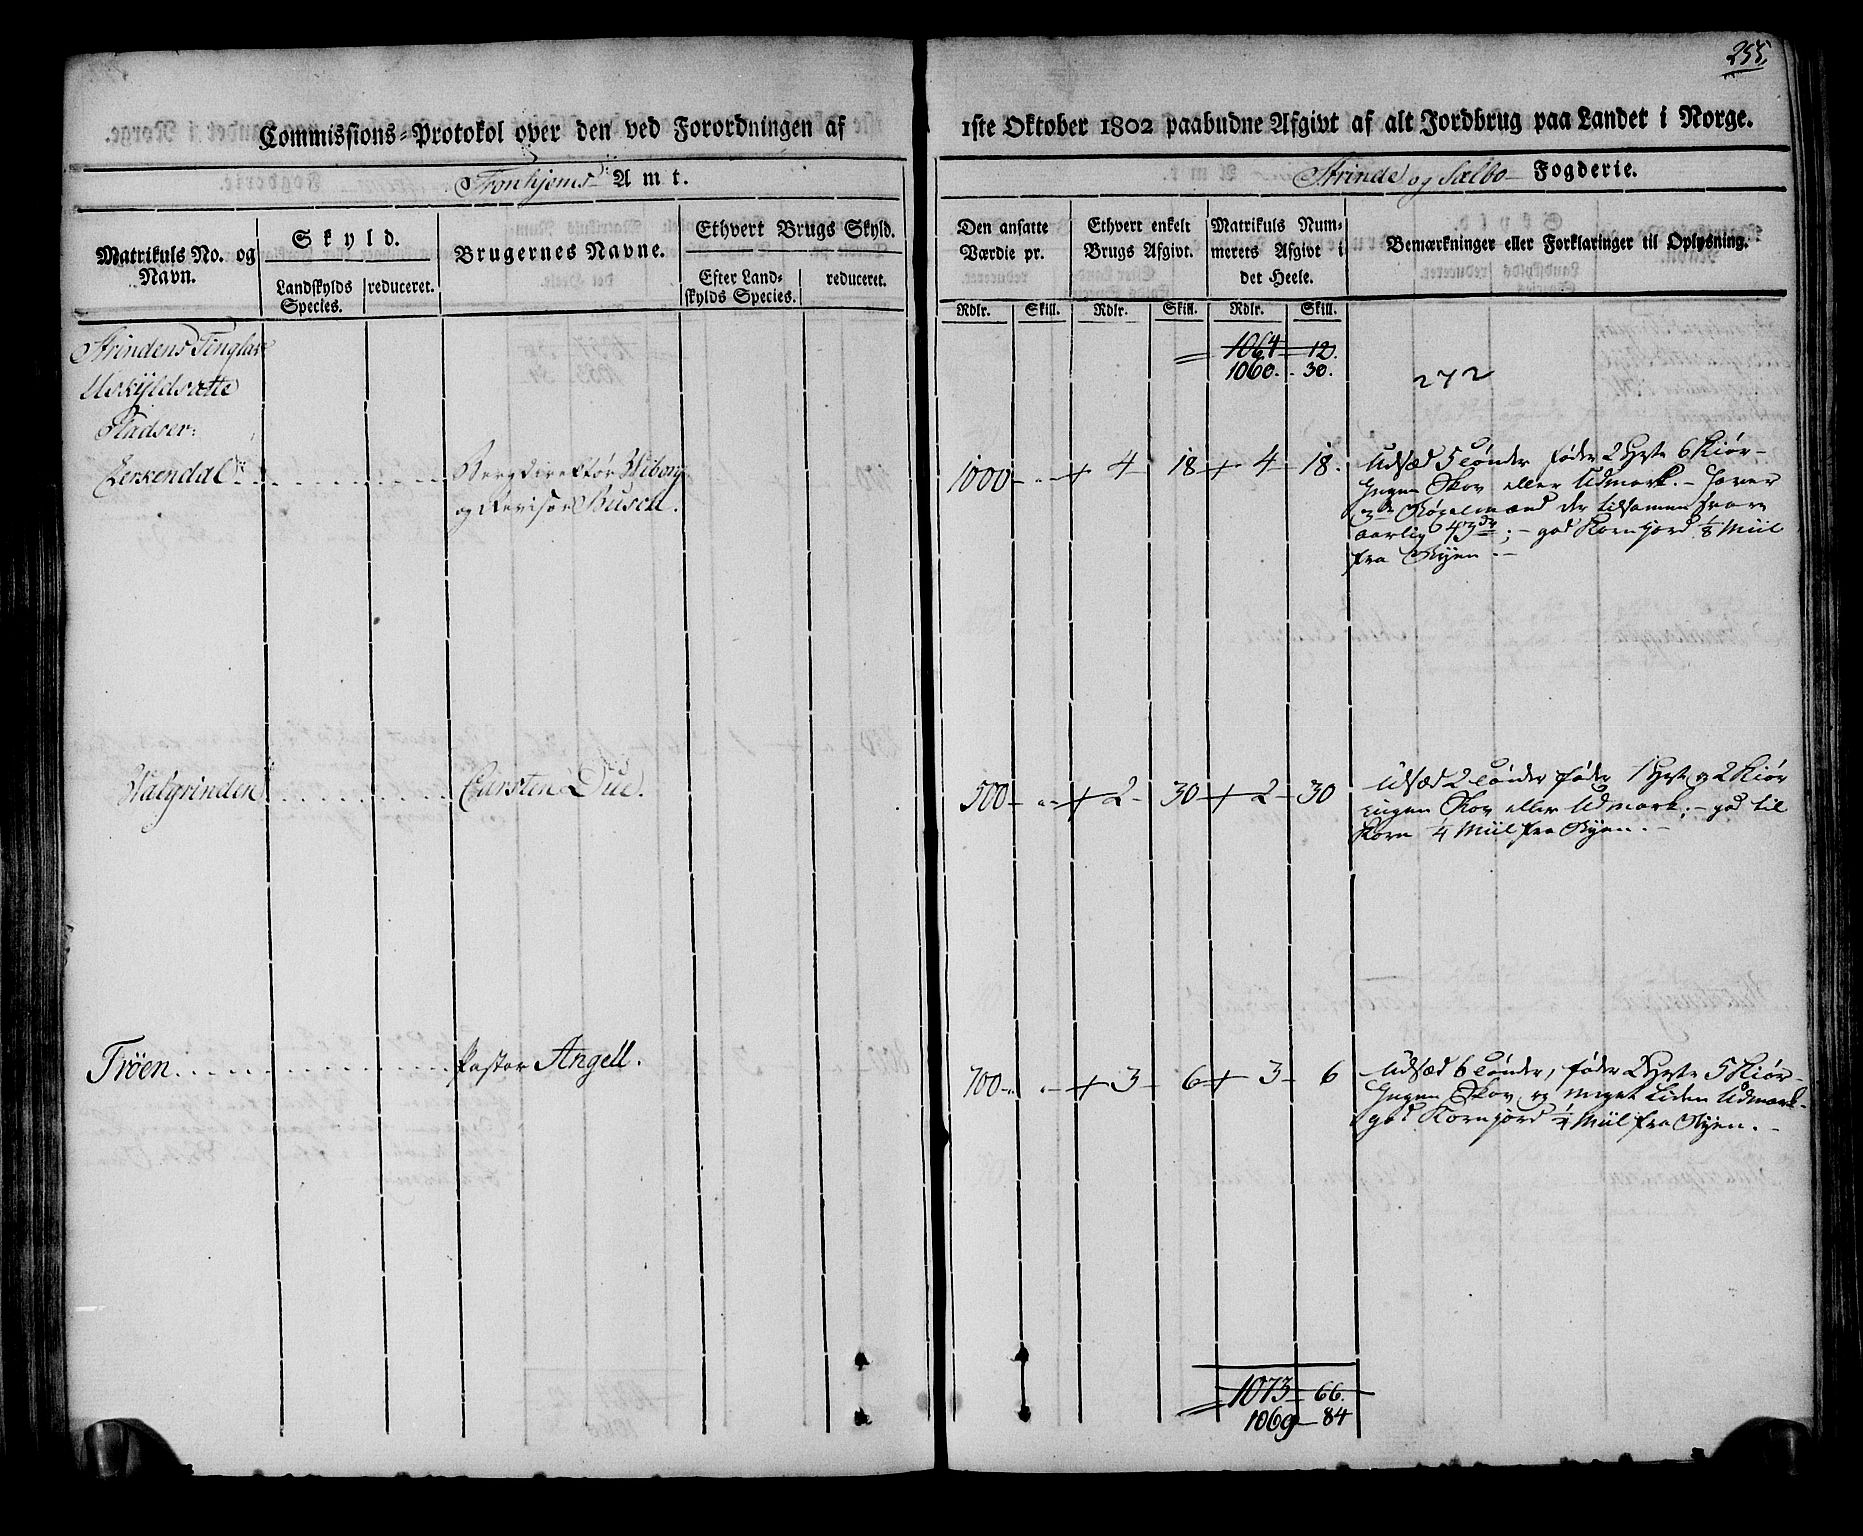 255.
Commissions-Protokol over den ved Forordningen af
1ste Oktober 1802 paabudne Afgivt af alt Jordbrug paa Landet i Norge.
Tronhjems Amt.
Strinde og Sælbo Fogderie.
Matrikuls No. og Navn.
Skyld.
Landskylds Species.
reduceret.
Brugernes Navne.
Ethvert Brugs Skyld.
Efter Landskylds Species.
reduceret.
Den ansatte Værdie pr.
Ethvert enkelt Brugs Afgivt.
Matrikuls Nummerets Afgivt i det Heele.
Bemærkninger eller Forklaringer til Oplysning.
Rdlr. Skill. Rdlr. Skill. Rdlr. Skill.
Strindens Tinglav
1064 12.
Uskyldsatte
1060. 30.
272
Pladser:
Lerkendal
Bergdirektør Wiborg
og Revisor Busch.
1000 4 18 4 18.
Udsæd 5 Tønder føder 2 Heste 6 Kiør -
Ingen Skov eller Udmark. -
aarlig 43 ; - god Kornjord 1/8 Miil
fra Byen. -
Valgrinden
Carsten Due.
500 2 30 2 30
Udsæd 2 Tønder føder 1 Hest og 2 Kiør
ingen Skov eller Udmark; - god til
Korn 1/4 Miil fra Byen. -
Trøen
Pastor Angell.
700 3 6 3 6
Udsæd 6 Tønder, føder 2 Heste 5 Kiør -
Ingen Skov og meget liden Udmark -
god Kornjord 1/4 Miil fra Byen. -
1073 66.
1069 84